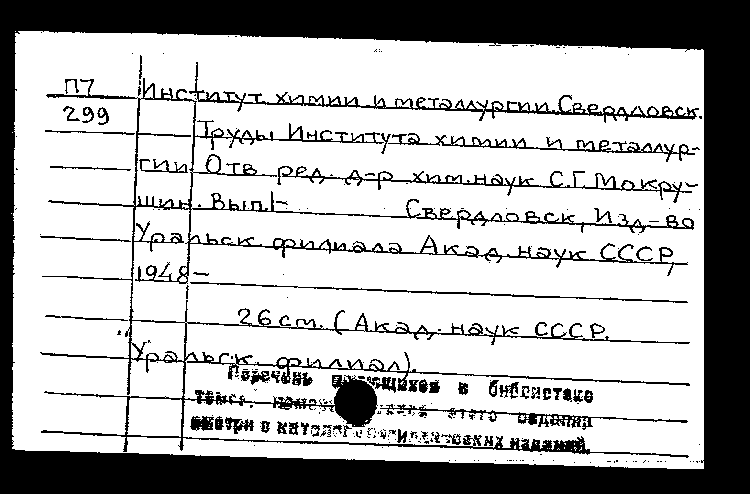 П7 Институт химии и металлургии. Свердловск.
299 Труды Института химии и металлур-
гии Отв. ред. д-р хим. наук С.Г. Мокру-
шин. Вып. 1- Свердловск, Изд-во
Уральск. филиала Акад. наук СССР,
1948-
26 см. (Акад. наук СССР.
Уральск. филиал).
Перечень имеющихся в библиотеке
томов, этого издания
смотри в каталоге продолжающихся изданий.